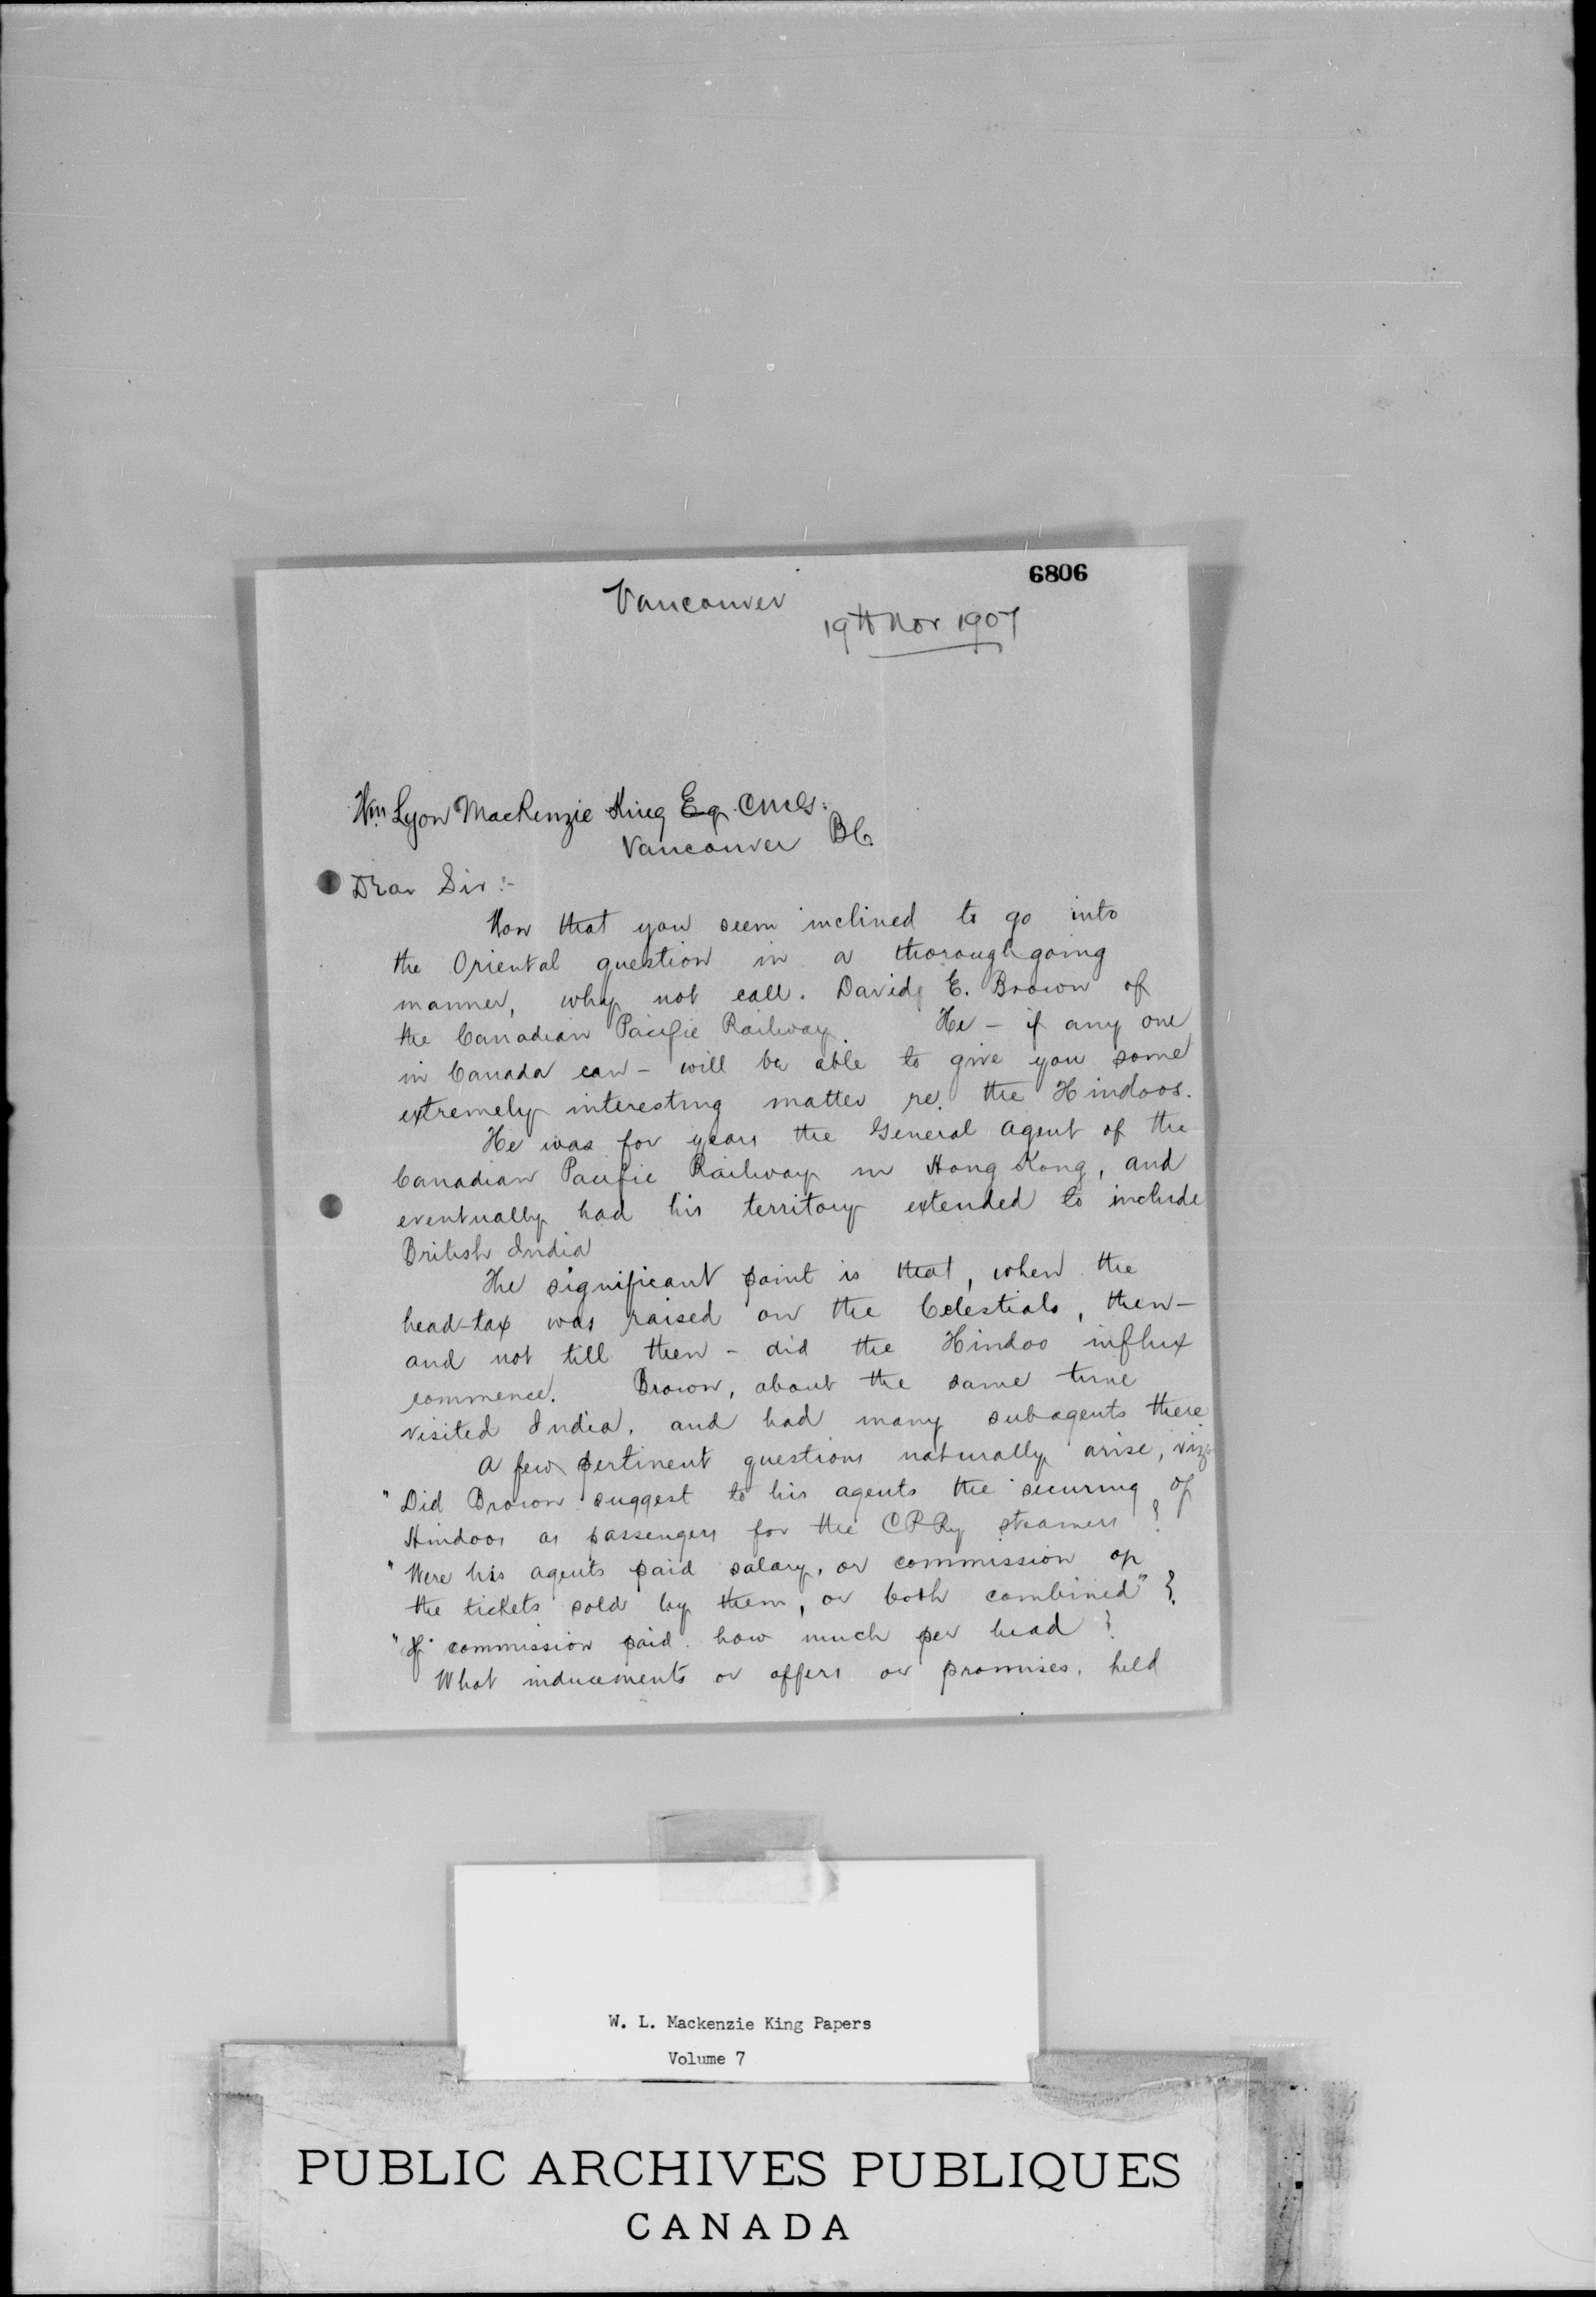 6806
Vancouver
19th Nov 1907
Wm Lyon MacKenzie King Esq. CMG:
Vancouver BC.
Dear Sir :-
Now that you seem inclined to go into
the Oriental question in a thoroughgoing
manner, why not call. David E. Brown of
the Canadian Pacific Railway. He - if any one
in Canada can - will be able to give you some
extremely interesting matter re. the Hindoos.
He was for years the General Agent of the
Canadian Pacific Railway in Hong Kong, and
eventually had his territory extended to include
British India
The significant point is that, when the
head-tax was raised on the Celestials, then -
and not till then - did the Hindoo influx
commence. Brown, about the same time
visited India, and had many subagents there
A few pertinent questions naturally arise, viz
"Did Brown suggest to his agents the securing of
Hindoos as passengers for the CPRy steamers ?
"Were his agents paid salary, or commission on
the tickets sold by them, or both combined" ?
"If commission paid. how much per head ?
What inducements or offers or promises, held
W. L. Mackenzie King Papers
Volume 7
PUBLIC ARCHIVES PUBLIQUES
CANADA